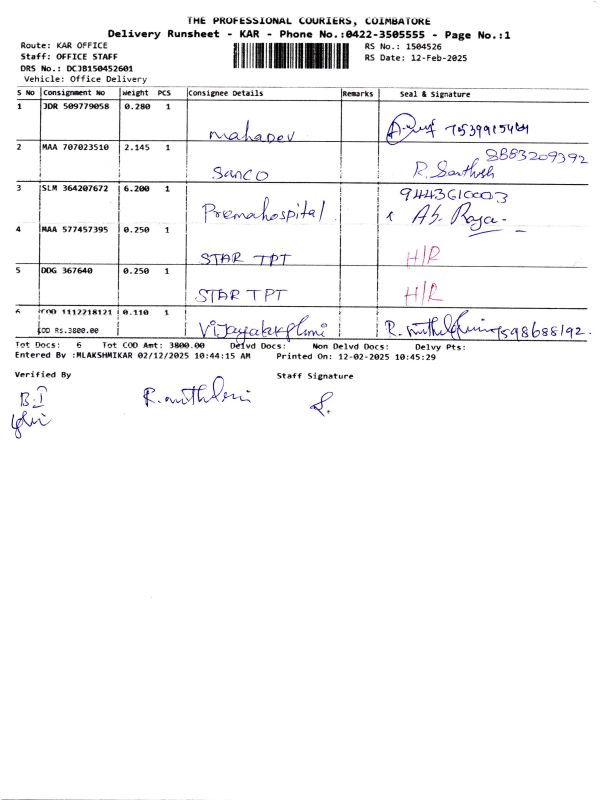 THE PROFESSIONAL COURIERS, COIMBATORE
Delivery Runsheet - KAR - Phone No.:0422-3505555 - Page No.:1
Route: KAR OFFICE
RS No.: 1504526
Staff: OFFICE STAFF
RS Date: 12-Feb-2025
DRS No.: DCJB150452601
Vehicle: Office Delivery
S No Consignment No Weight PCS Consignee Details Remarks Seal & Signature
1 JDR 509779058 0.280 1
mahadev
2 MAA 707023510 2.145 1 8883209392
Sanco R. Santhosh
3 SLM 364207672 6.200 1 9443610003
Premahospital
4 MAA 577457395 0.250 1
STAR TPT H/R
5 DDG 367640 0.250 1
STAR TPT H/R
6 COD 1112218121 0.110 1
COD RS.3800.00 Vijayalakshmi
Tot Docs: 6 Tot COD Amt: 3800.00 Delvd Docs: Non Delvd Docs: Delvy Pts:
Entered By :MLAKSHMIKAR 02/12/2025 10:44:15 AM Printed On: 12-02-2025 10:45:29
Verified By Staff Signature